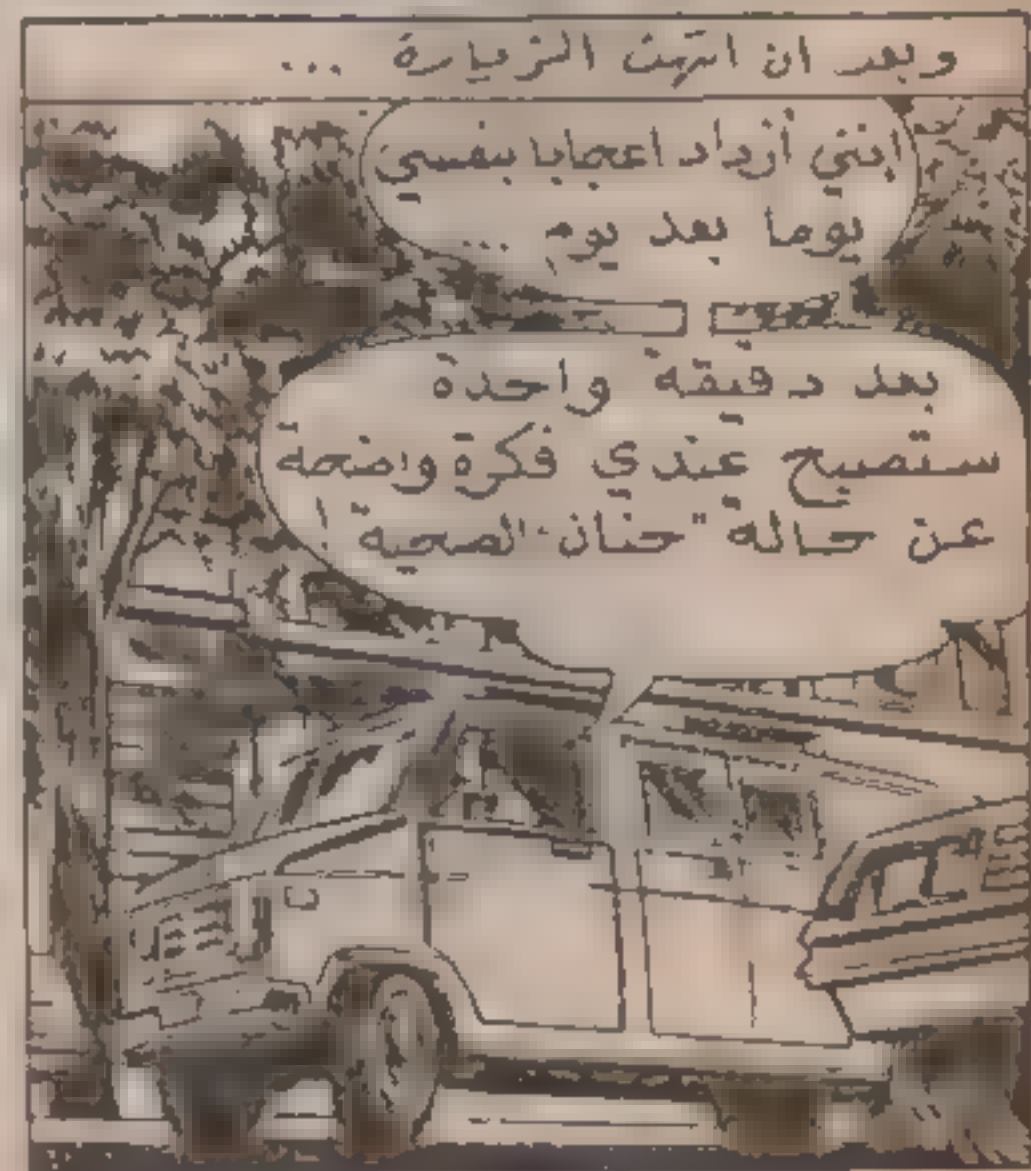 وبعد ان انتهت الزيارة ...
إنني أزداد اعجابا بنفسي
يوما بعد يوم ...
بعد دقيقة واحدة
ستصبح عندي فكرة واضحة
عن حالة "حنان" الصحية !